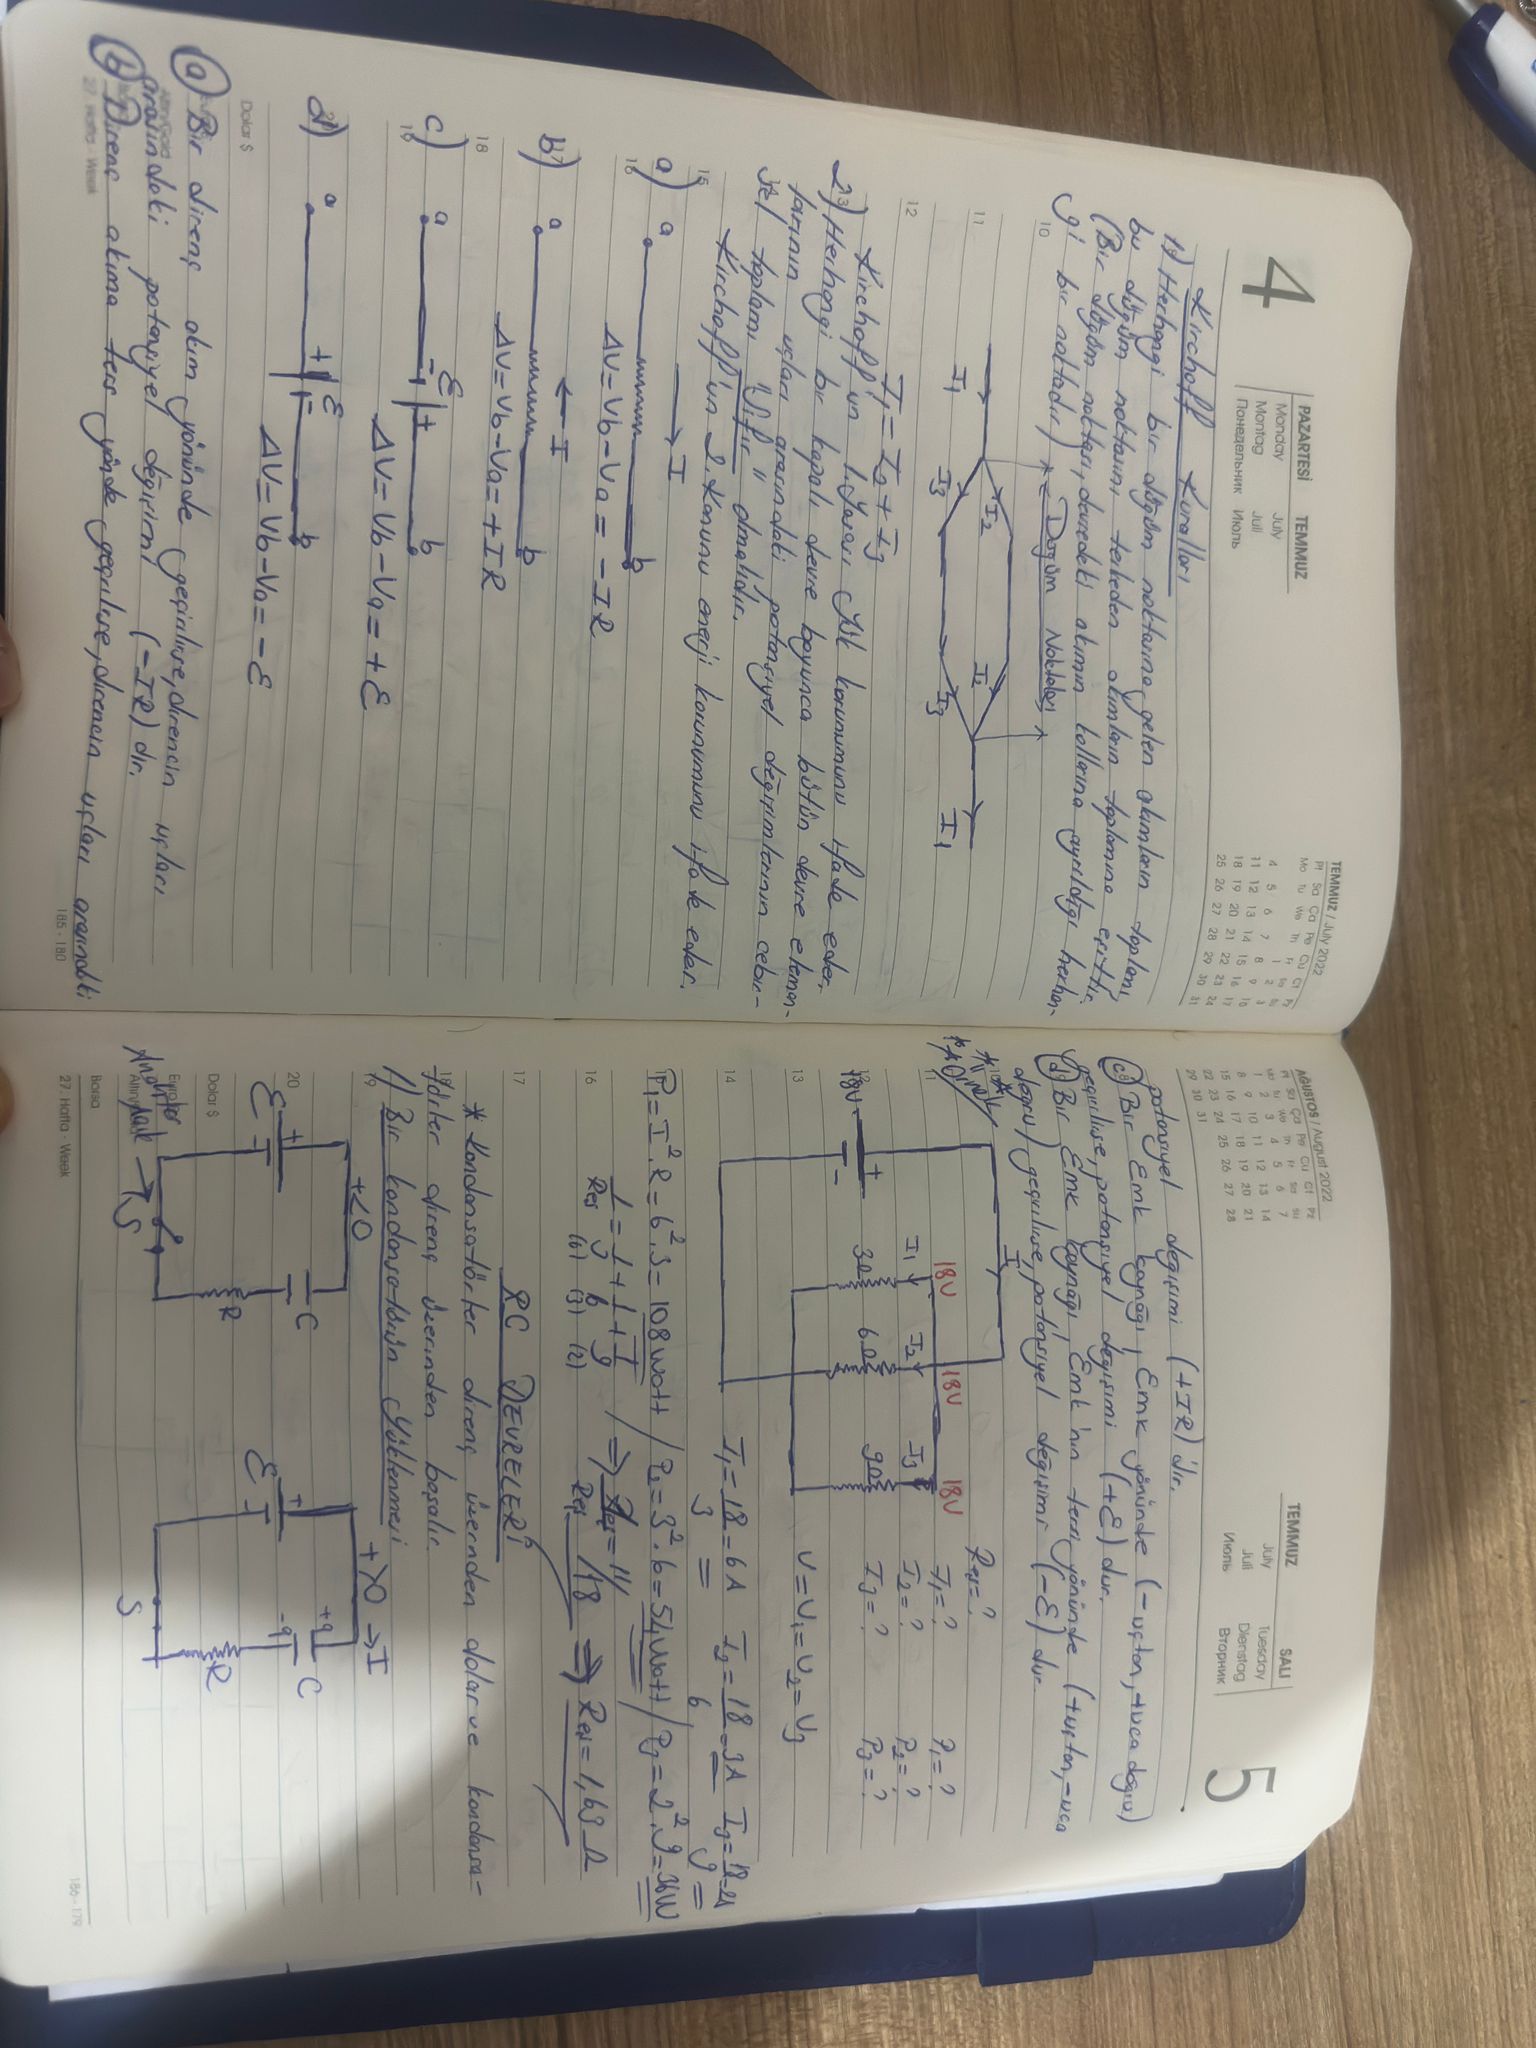 4
PAZARTESİ TEMMUZ
Monday July
Montag Juli
Понедельник Июль
TEMMUZ / July 2022
Pt Sa Ça Pe Cu Ct Pz
Mo Tu We Th Fr Sa Su
1 2 3
4 5 6 7 8 9 10
11 12 13 14 15 16 17
18 19 20 21 22 23 24
25 26 27 28 29 30 31
Kirchoff Kuralları
1) Herhangi bir düğüm noktasına gelen akımların toplamı,
bu düğüm noktasını terkeden akımların toplamına eşittir.
(Bir düğüm noktası, devredeki akımın kollarına ayrıldığı herhan-
gi bir noktadır)
Düğüm Noktaları
10
I2 I2
11
I1 I3 I3 I1
12
I1 = I2 + I3
Kirchoff'un 1. Yasası Yük korunumunu ifade eder.
13
2) Herhangi bir kapalı devre boyunca bütün devre eleman-
larının uçları arasındaki potansiyel değişimlerinin cebir-
sel toplamı "Sıfır" olmalıdır.
Kirchoff'un 2. Kanunu enerji korunumunu ifade eder.
15
a) a → I b
16
ΔV = Vb - Va = - IR
b) a ← I b
ΔV = Vb - Va = + IR
18
c) a - ε + b
19
ΔV = Vb - Va = + ε
d) a + ε - b
ΔV = Vb - Va = - ε
Dolar $
(a) Bir direnç akım yönünde geçirilirse, direncin uçları
Altın/Gold
arasındaki potansiyel değişimi (-IR) dir.
(b) Direnç akıma ters yönde geçirilirse, direncin uçları arasındaki
27. Hafta - Week
185 - 180
AĞUSTOS / August 2022
Pt Sa Ça Pe Cu Ct Pz
Mo Tu We Th Fr Sa Su
1 2 3 4 5 6 7
8 9 10 11 12 13 14
15 16 17 18 19 20 21
22 23 24 25 26 27 28
29 30 31
TEMMUZ SALI
July Tuesday
Juli Dienstag
Июль Вторник
5
potansiyel değişimi (+IR)'dir.
(c) Bir Emk kaynağı, Emk yönünde (-uçtan, +uca doğru)
geçirilirse, potansiyel değişimi (+ε) dur.
(d) Bir Emk kaynağı, Emk'nın tersi yönünde (+uçtan, -uca
doğru) geçirilirse, potansiyel değişimi (-ε) dur.
Örnek
I
18V 18V 18V
11
I1 I2 I3
3Ω 6Ω 9Ω
18V + -
Reş = ?
I1 = ? P1 = ?
I2 = ? P2 = ?
I3 = ? P3 = ?
13
V = V1 = V2 = V3
14
I1 = 18/3 = 6A I2 = 18/6 = 3A I3 = 18/9 = 2A
P1 = I².R = 6².3 = 108 watt / P2 = 3².6 = 54 watt / P3 = 2².9 = 36W
1/Reş = 1/3 + 1/6 + 1/9 ⇒ 1/Reş = 11/18 ⇒ Reş = 1,63 Ω
(6) (3) (2)
16
17
RC DEVRELERİ
* Kondansatörler direnç üzerinden dolar ve kondansa-
törler direnç üzerinden boşalır.
1) Bir kondansatörün Yüklenmesi
19
+<0
+ ε - C R
Anahtar
Açık → S
+>0 → I
+ ε - +q -q C R
S
20
Dolar $
Euro
Altın/Gold
Borsa
27. Hafta - Week
186 - 179